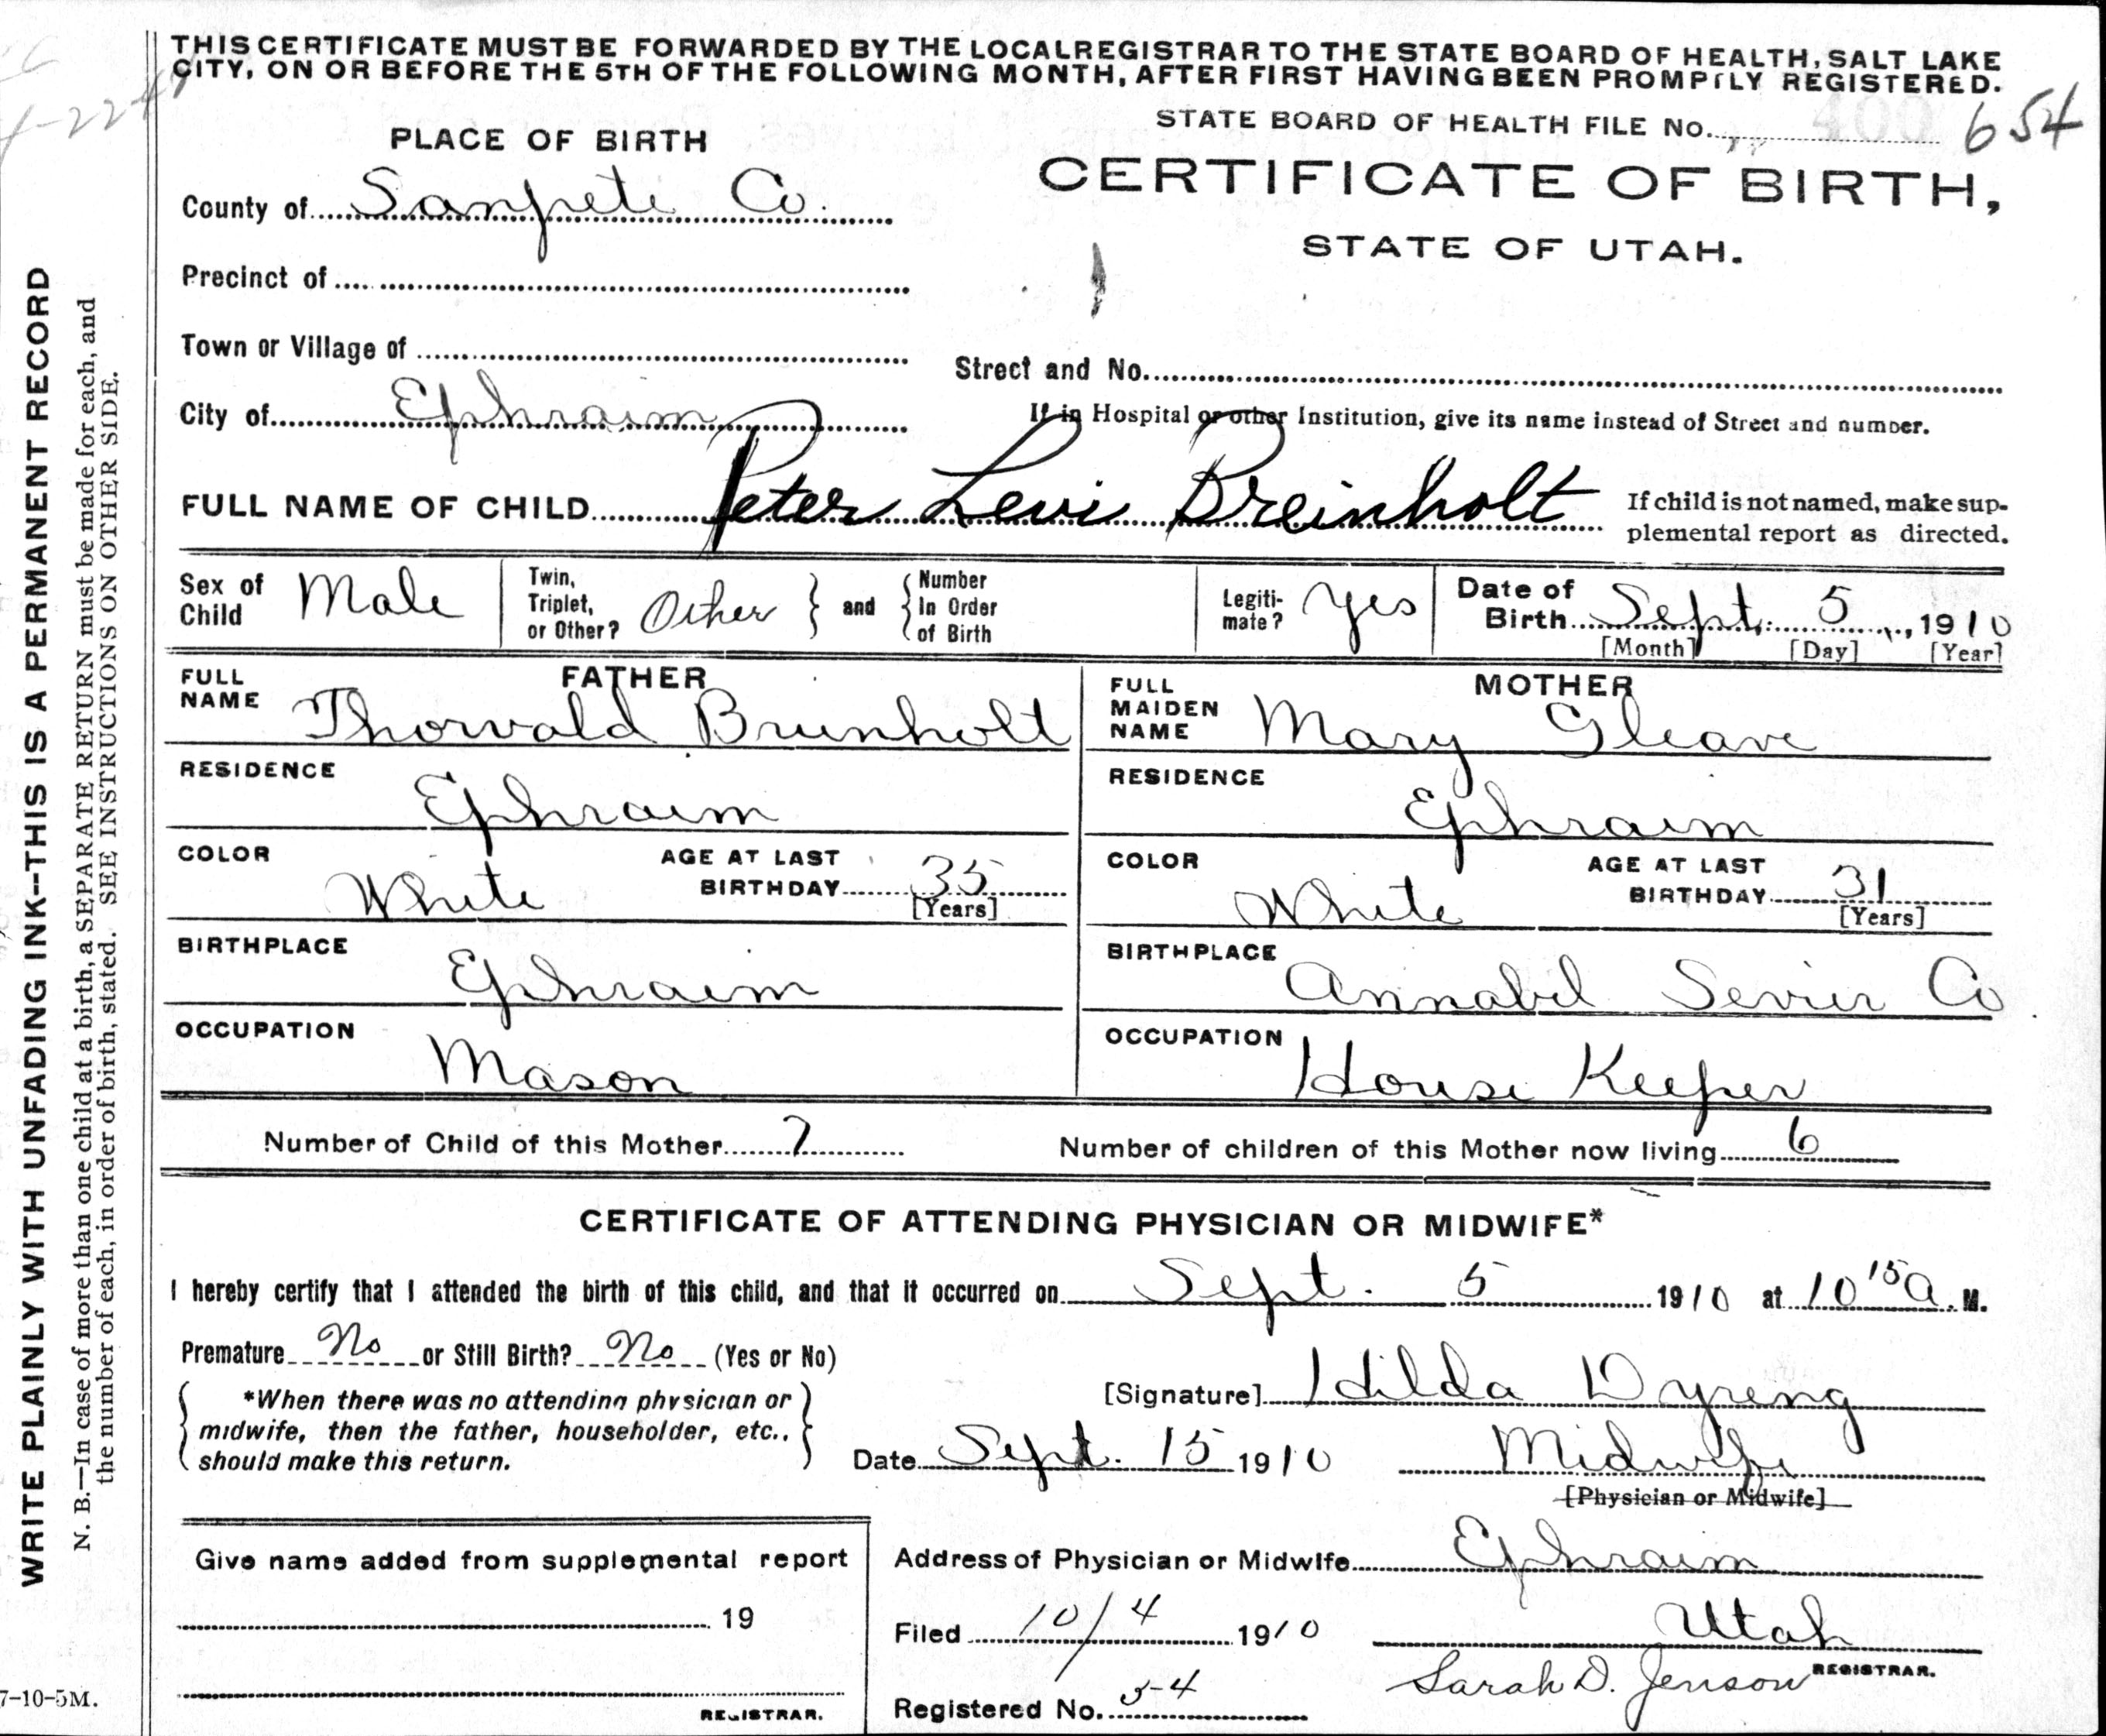 THIS CERTIFICATE MUST BE FORWARDED BY THE LOCAL REGISTRAR TO THE STATE BOARD OF HEALTH, SALT LAKE
CITY, ON OR BEFORE THE 5TH OF THE FOLLOWING MONTH, AFTER FIRST HAVING BEEN PROMPTLY REGISTERED.
STATE BOARD OF HEALTH FILE No. 400 654
PLACE OF BIRTH
CERTIFICATE OF BIRTH,
STATE OF UTAH.
County of Sanpete Co.
Precinct of
Town or Village of
Street and No.
City of Ephraim
If in Hospital or other Institution, give its name instead of Street and number.
FULL NAME OF CHILD Peter Levi Breinholt
If child is not named, make sup-
plemental report as directed.
Sex of Child Male
Twin, Triplet, or Other? Other } and { Number In Order of Birth
Legiti-mate? Yes
Date of Birth Sept. 5, 1910
[Month] [Day] [Year]
FATHER
FULL NAME Thorvald Brunholt
MOTHER
FULL MAIDEN NAME Mary Gleave
RESIDENCE Ephraim
RESIDENCE Ephraim
COLOR White AGE AT LAST BIRTHDAY 35 [Years]
COLOR White AGE AT LAST BIRTHDAY 31 [Years]
BIRTHPLACE Ephraim
BIRTHPLACE Annabel Sevier Co
OCCUPATION Mason
OCCUPATION House Keeper
Number of Child of this Mother 7
Number of children of this Mother now living 6
CERTIFICATE OF ATTENDING PHYSICIAN OR MIDWIFE*
I hereby certify that I attended the birth of this child, and that it occurred on Sept. 5 1910 at 10 15 a. M.
Premature No or Still Birth? No (Yes or No)
*When there was no attending physician or
midwife, then the father, householder, etc.,
should make this return.
[Signature] Hilda Dyreng
Date Sept. 15 1910
Midwife
[Physician or Midwife]
Give name added from supplemental report
19
REGISTRAR.
Address of Physician or Midwife Ephraim
Utah
Filed 10/4 1910
Sarah D. Jenson REGISTRAR.
Registered No. 54
WRITE PLAINLY WITH UNFADING INK--THIS IS A PERMANENT RECORD
N. B.—In case of more than one child at a birth, a SEPARATE RETURN must be made for each, and
the number of each, in order of birth, stated. SEE INSTRUCTIONS ON OTHER SIDE.
7-10-5M.